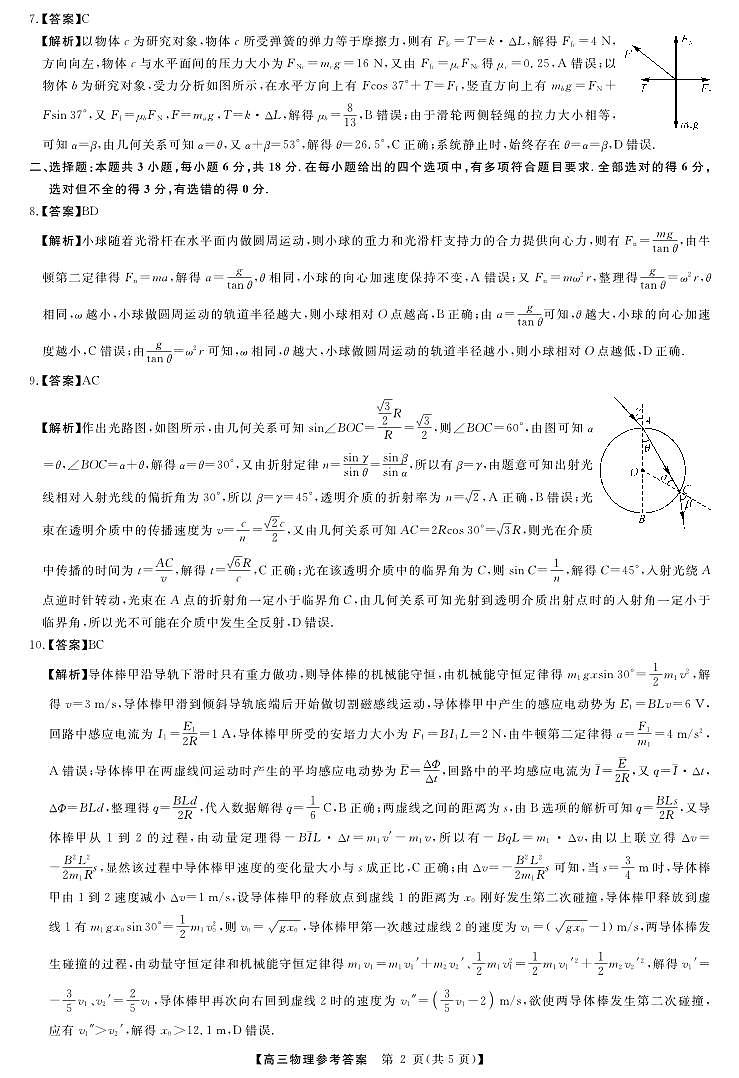 7.【答案】C
【解析】以物体 c 为研究对象,物体 c 所受弹簧的弹力等于摩擦力,则有 F_fc=T=k·ΔL,解得 F_fc=4 N,
方向向左,物体 c 与水平面间的压力大小为 F_Nc=m_cg=16 N,又由 F_fc=μ_cF_Nc 得 μ_c=0.25,A 错误;以
物体 b 为研究对象,受力分析如图所示,在水平方向上有 Fcos 37°+T=F_f,竖直方向上有 m_bg=F_N+
Fsin 37°,又 F_f=μ_bF_N,F=m_ag,T=k·ΔL,解得 μ_b=8/13,B 错误;由于滑轮两侧轻绳的拉力大小相等,
可知 α=β,由几何关系可知 α=θ,又 α+β=53°,解得 θ=26.5°,C 正确;系统静止时,始终存在 θ=α=β,D 错误.
F
T
m_bg
二、选择题:本题共 3 小题,每小题 6 分,共 18 分.在每小题给出的四个选项中,有多项符合题目要求.全部选对的得 6 分,
选对但不全的得 3 分,有选错的得 0 分.
8.【答案】BD
【解析】小球随着光滑杆在水平面内做圆周运动,则小球的重力和光滑杆支持力的合力提供向心力,则有 F_n=mg/tan θ,由牛
顿第二定律得 F_n=ma,解得 a=g/tan θ,θ 相同,小球的向心加速度保持不变,A 错误;又 F_n=mω²r,整理得 g/tan θ=ω²r,θ
相同,ω 越小,小球做圆周运动的轨道半径越大,则小球相对 O 点越高,B 正确;由 a=g/tan θ 可知,θ 越大,小球的向心加速
度越小,C 错误;由 g/tan θ=ω²r 可知,ω 相同,θ 越大,小球做圆周运动的轨道半径越小,则小球相对 O 点越低,D 正确.
9.【答案】AC
【解析】作出光路图,如图所示,由几何关系可知 sin∠BOC=(√3/2 R)/R=√3/2,则∠BOC=60°,由图可知 α
=θ,∠BOC=α+θ,解得 α=θ=30°,又由折射定律 n=sin γ/sin θ=sin β/sin α,所以有 β=γ,由题意可知出射光
线相对入射光线的偏折角为 30°,所以 β=γ=45°,透明介质的折射率为 n=√2,A 正确,B 错误;光
束在透明介质中的传播速度为 v=c/n=√2c/2,又由几何关系可知 AC=2Rcos 30°=√3R,则光在介质
中传播的时间为 t=AC/v,解得 t=√6R/c,C 正确;光在该透明介质中的临界角为 C,则 sin C=1/n,解得 C=45°,入射光绕 A
点逆时针转动,光束在 A 点的折射角一定小于临界角 C,由几何关系可知光射到透明介质出射点时的入射角一定小于
临界角,所以光不可能在介质中发生全反射,D 错误.
A
θ
O
α
C
β
B
10.【答案】BC
【解析】导体棒甲沿导轨下滑时只有重力做功,则导体棒的机械能守恒,由机械能守恒定律得 m₁gxsin 30°=1/2 m₁v²,解
得 v=3 m/s,导体棒甲滑到倾斜导轨底端后开始做切割磁感线运动,导体棒甲中产生的感应电动势为 E₁=BLv=6 V,
回路中感应电流为 I₁=E₁/2R=1 A,导体棒甲所受的安培力大小为 F₁=BI₁L=2 N,由牛顿第二定律得 a=F₁/m₁=4 m/s²,
A 错误;导体棒甲在两虚线间运动时产生的平均感应电动势为 E̅=ΔΦ/Δt,回路中的平均感应电流为 I̅=E̅/2R,又 q=I̅·Δt,
ΔΦ=BLd,整理得 q=BLd/2R,代入数据解得 q=1/6 C,B 正确;两虚线之间的距离为 s,由 B 选项的解析可知 q=BLs/2R,又导
体棒甲从 1 到 2 的过程,由动量定理得-BI̅L·Δt=m₁v′-m₁v,所以有-BqL=m₁·Δv,由以上联立得 Δv=
-B²L²/2m₁R s,显然该过程中导体棒甲速度的变化量大小与 s 成正比,C 正确;由 Δv=-B²L²/2m₁R s 可知,当 s=3/4 m 时,导体棒
甲由 1 到 2 速度减小 Δv=1 m/s,设导体棒甲的释放点到虚线 1 的距离为 x₀ 刚好发生第二次碰撞,导体棒甲释放到虚
线 1 有 m₁gx₀sin 30°=1/2 m₁v₀²,则 v₀=√gx₀,导体棒甲第一次越过虚线 2 的速度为 v₁=(√gx₀-1) m/s,两导体棒发
生碰撞的过程,由动量守恒定律和机械能守恒定律得 m₁v₁=m₁v₁′+m₂v₂′、1/2 m₁v₁²=1/2 m₁v₁′²+1/2 m₂v₂′²,解得 v₁′=
-3/5 v₁、v₂′=2/5 v₁,导体棒甲再次向右回到虚线 2 时的速度为 v₁″=(3/5 v₁-2) m/s,欲使两导体棒发生第二次碰撞,
应有 v₁″>v₂′,解得 x₀>12.1 m,D 错误.
【高三物理参考答案 第 2 页(共 5 页)】